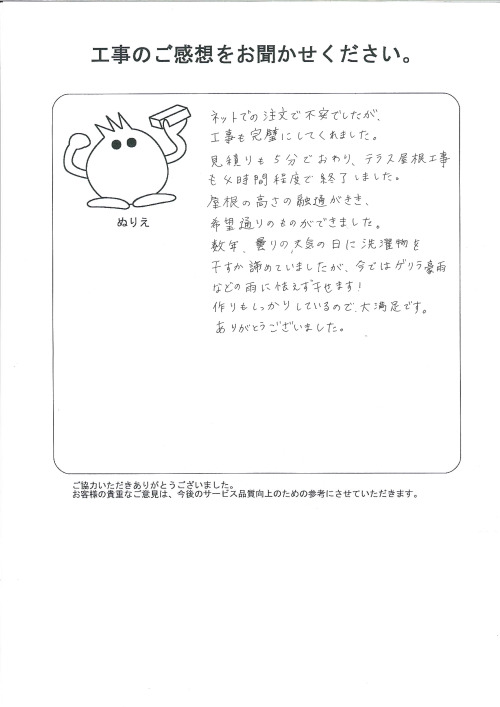 工事のご感想をお聞かせください。
ネットでの注文で不安でしたが、
工事も完璧にしてくれました。
見積りも5分でおわり、テラス屋根工事
も4時間程度で終了しました。
屋根の高さの融通がきき、
希望通りのものができました。
ぬりえ
数年、曇りの天気の日に洗濯物を
干すか諦めていましたが、今ではゲリラ豪雨
などの雨に怯えず干せます!
作りもしっかりしているので、大満足です。
ありがとうございました。
ご協力いただきありがとうございました。
お客様の貴重なご意見は、今後のサービス品質向上のための参考にさせていただきます。